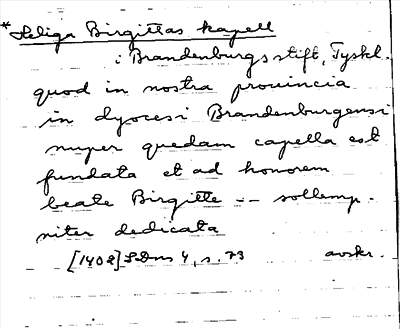 * Heliga Birgittas kapell
i Brandenburgs stift, Tyskl.
quod in nostra prouincia
in dyocesi Brandenburgensi
nuper quedam capella est
fundata et ad honorem
beate Birgitte -- sollemp-
niter dedicata
[1402] SDns 4, s. 73 avskr.